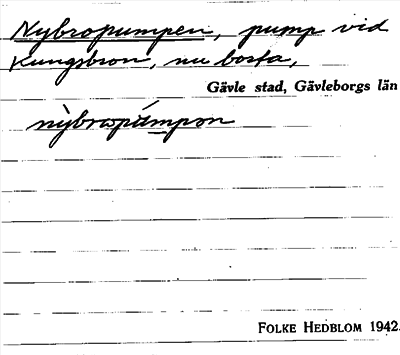 Nybropumpen, pump vid
Kungsbron, nu borta,
Gävle stad, Gävleborgs län
nỳbropúmpən
FOLKE HEDBLOM 1942.